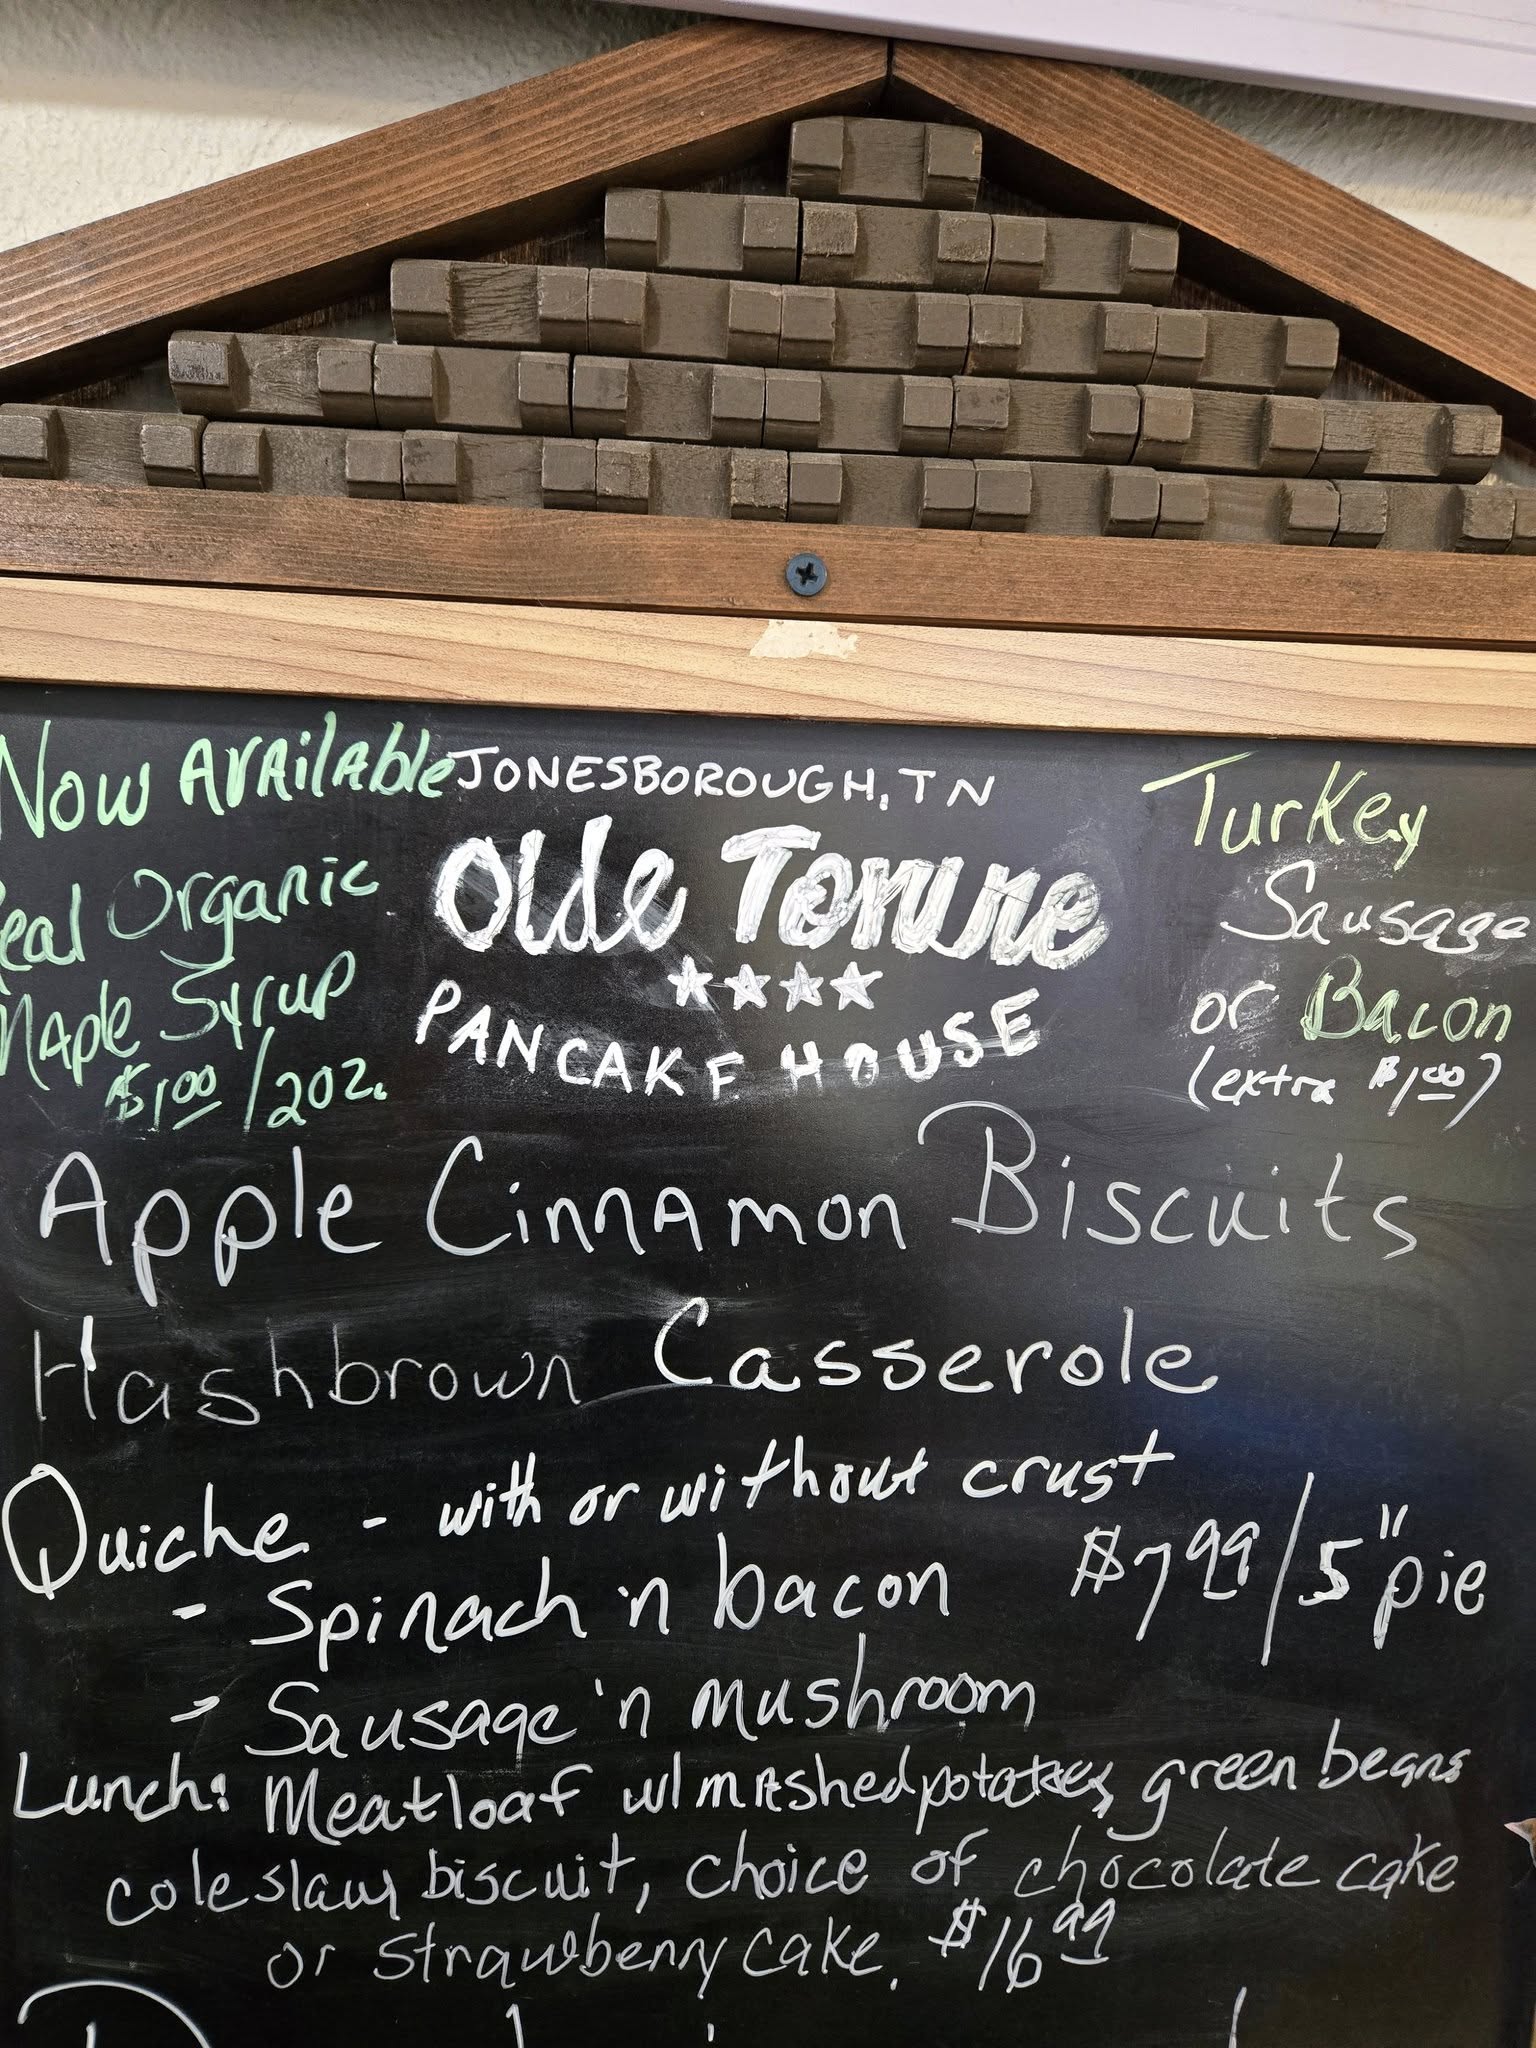 Now Available
Real Organic
Maple Syrup
$1.00/2oz.
JONESBOROUGH, TN
Olde Towne
PANCAKE HOUSE
Turkey
Sausage
or Bacon
(extra $1.00)
Apple Cinnamon Biscuits
Hashbrown Casserole
Quiche - with or without crust
- Spinach 'n bacon $7.99/5" pie
- Sausage 'n mushroom
Lunch: Meatloaf w/ mashed potatoes, green beans
coleslaw, biscuit, choice of chocolate cake
or strawberry cake. $16.99